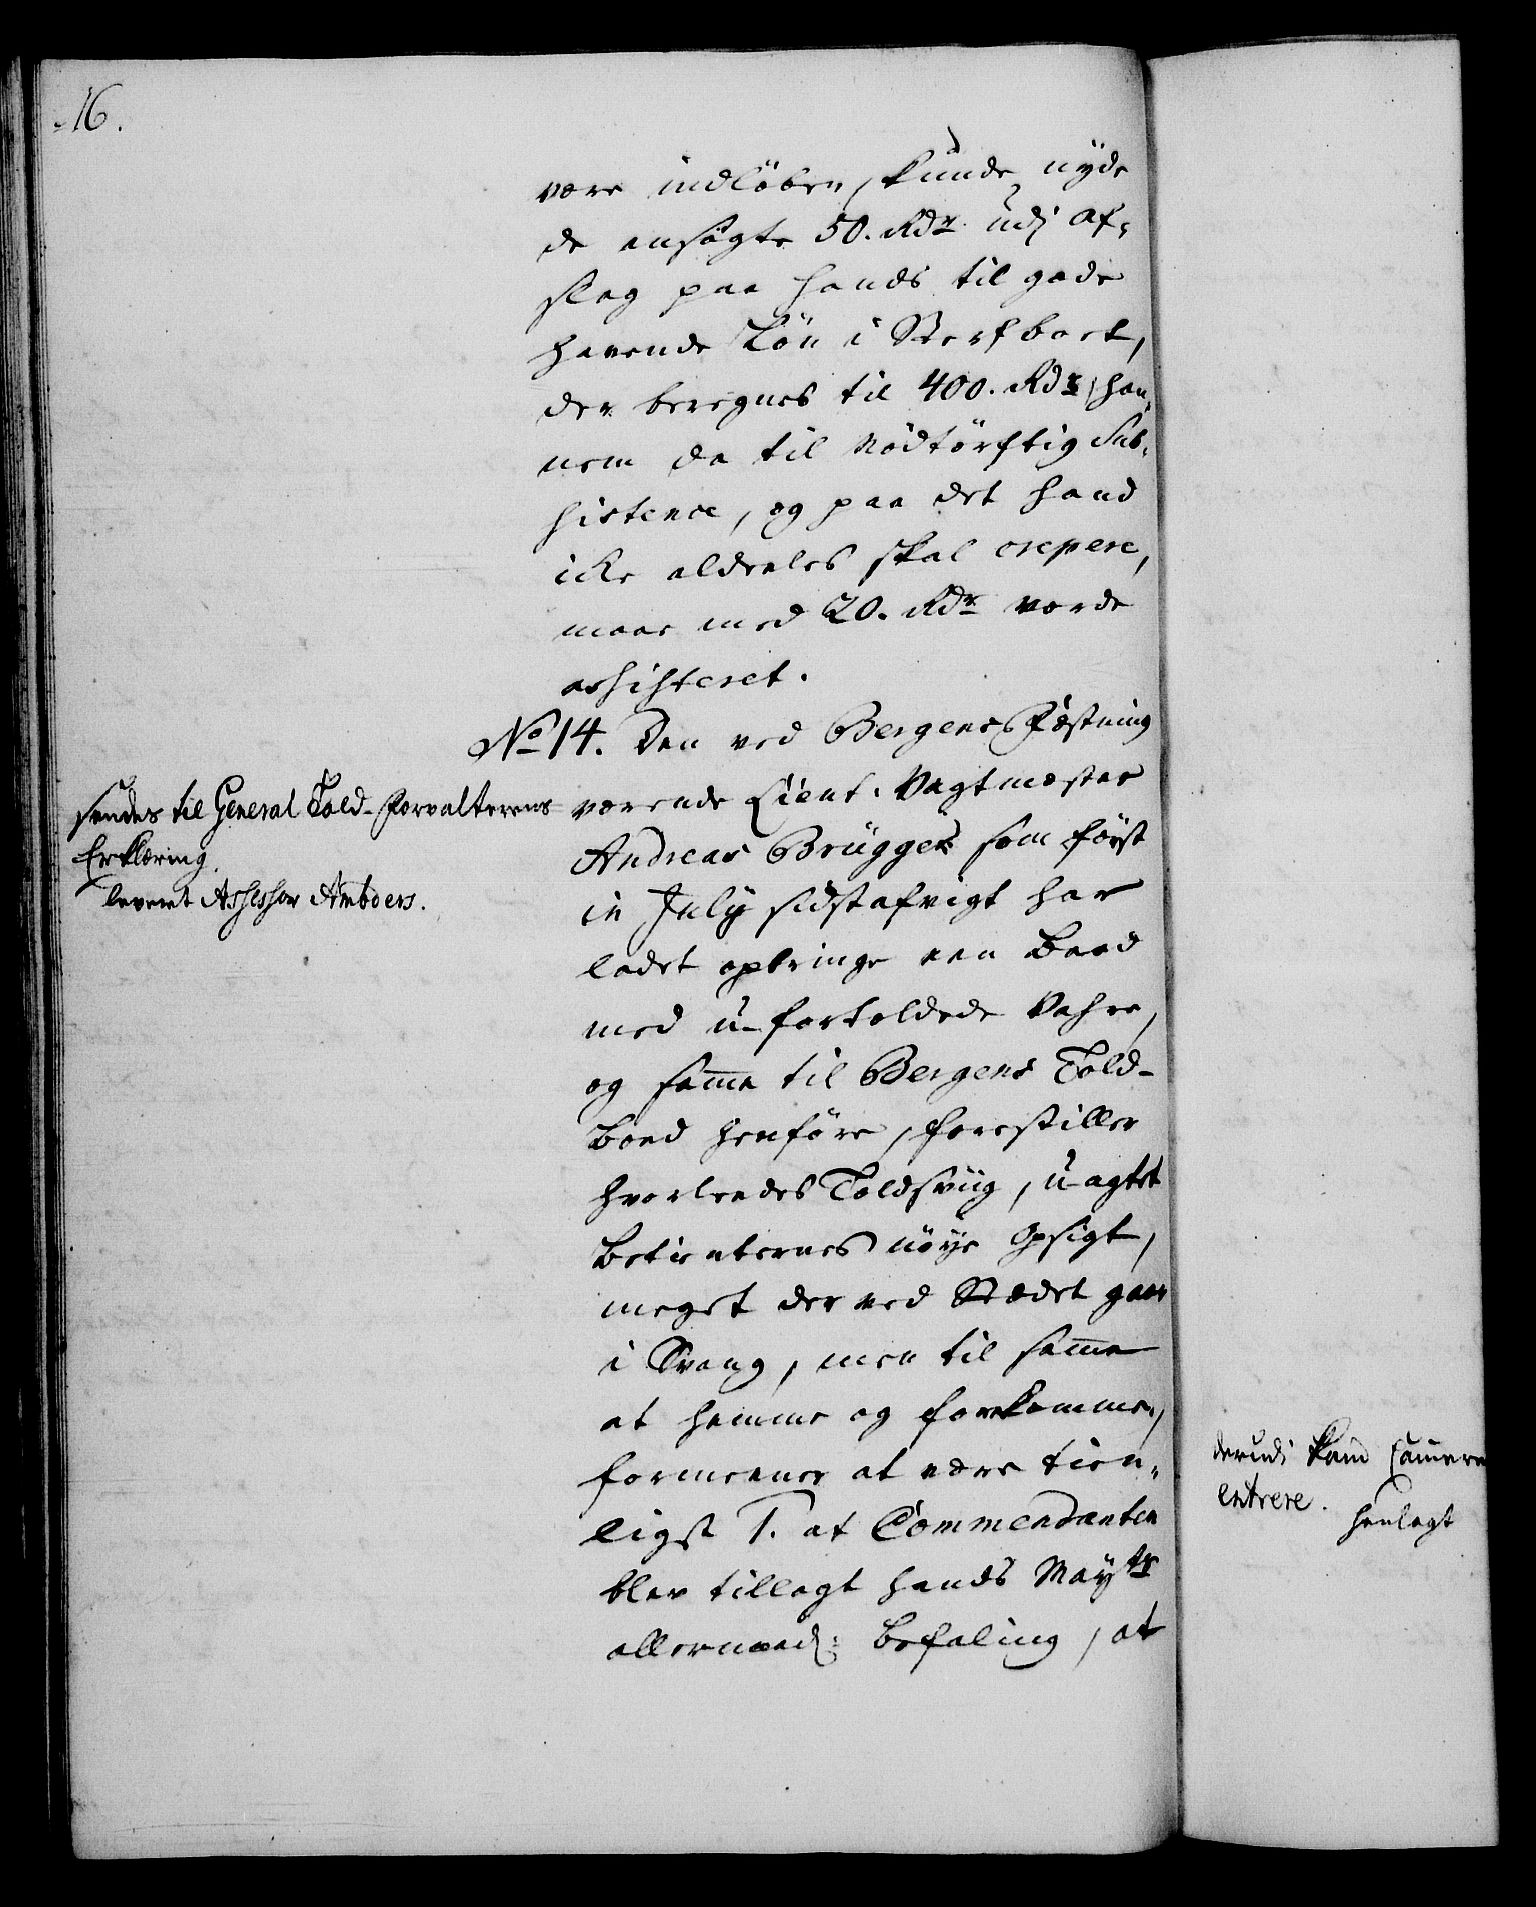 16.
være indløben, kunde nyde
de ansøgte 50. Rdr udj Af-
slag paa hands til gode
havende Løn i Sterfboet,
der beregnes til 400. Rdr, han-
nem da til Nødtørftig Sub-
sistence, og paa det hand
icke aldeeles skal crepere,
maae med 20. Rdr vorde
assisteret.
No 14. Den ved Bergens Fæstning
værende Lieut: Vagtmester
Andreas Brügger som først
in July sidstafvigt har
ladet opbringe een Baad
med u-fortoldede Vahre,
og samme til Bergens Told-
boed henføre, forestiller
hvorleedes Toldsviig, u-agtet
Betienternes nøye Opsigt,
meget der ved Stædet gaar
i Svang, men til samme
at hemme og forekomme,
formeener at være tien-
ligst 1. at Commendanten
blev tillagt hands Mayts
allernaad: Befaling, at
sendes til General Told-Forvalterens
Erklæring.
leveret Assessor Ambders.
derudi kand Cammeret
entrere.
henlagt